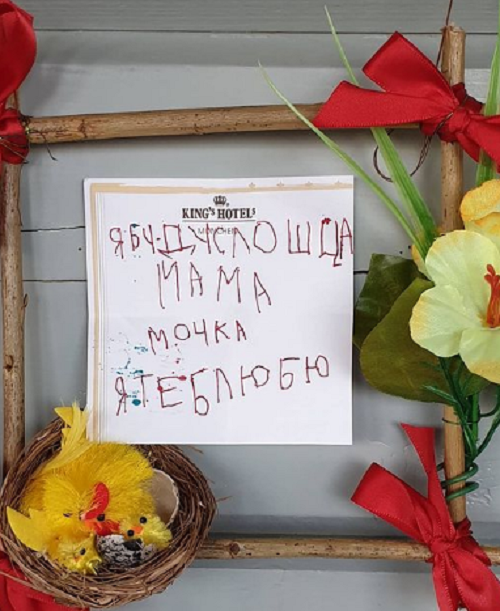 KING'S HOTEL
MÜNCHEN
Я БУДУ СЛОШЦА
МАМА
МОЧКА
Я ТЕБ ЛЮБЮ